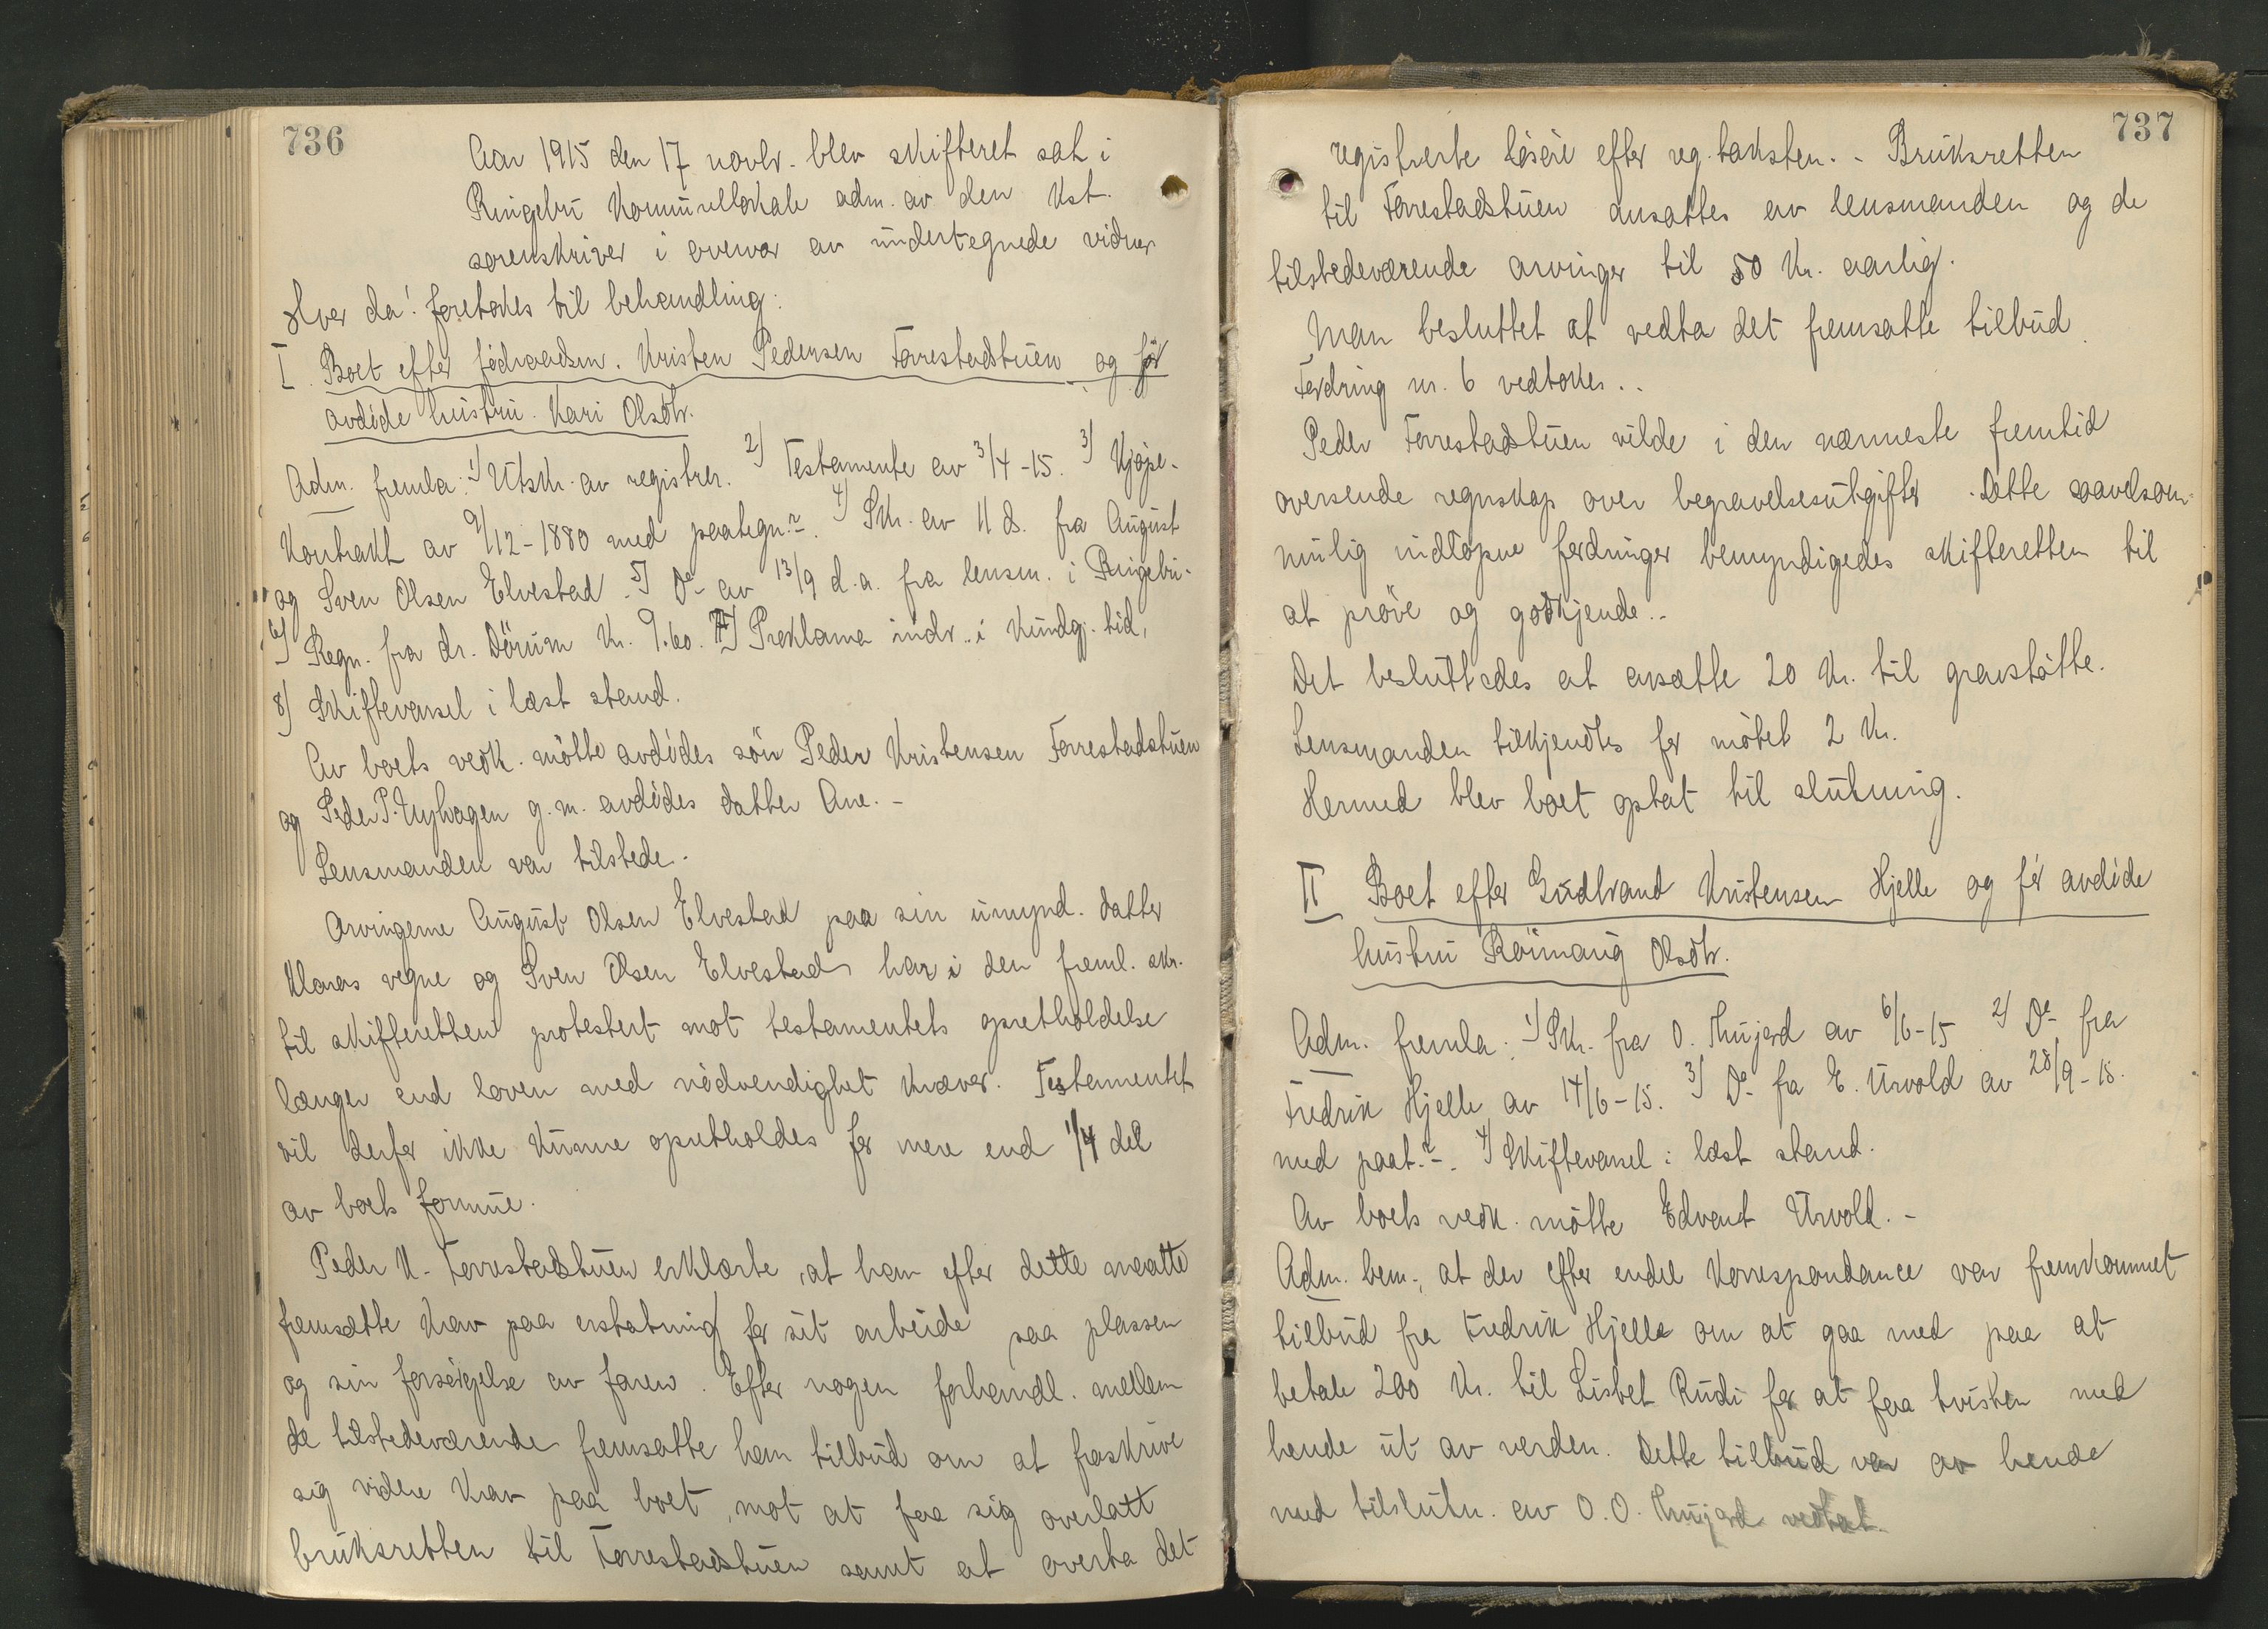 736
Aar 1915 den 17 novbr. blev skifteret sat i
Ringebu kommunelokale adm. av den kst.
sorenskriver i overvær av undertegnede vidner
Hver da! foretokes til behandling:
I. Boet efter føderaadsm. Kristen Pedersen Forrestadstuen og før
avdöde hustru Kari Olsdtr.
Adm. fremla: 1) Utskr. av registrer. 2) Testamente av 3/4-15. 3) Kjöpe-
kontrakt av 9/12-1880 med paategn. 4) Skr. av 11 ds. fra August
og Sven Olsen Elvestad. 5) Do av 13/9 d.a. fra lensm. i Ringebu.
6) Regn. fra dr. Dörum kr. 9.60. 7) Proklama indr. i kundgj. tid,
8) Skiftevarsel i læst stand.
Av boets vedk. mötte avdödes sön Peder Kristensen Forrestadstuen
og Peder P. Nyhagen g. m. avdödes datter Ane. -
Lensmanden var tilstede.
Arvingerne August Olsen Elvestad paa sin umynd. datter
Klaras vegne og Sven Olsen Elvestad har i den freml. skr.
til skifteretten protestert mot testamentets opretholdelse
længer end loven med nödvendighet kræver. Testamentet
vil derfor ikke kunne opretholdes for mere end 1/4 del
av boets formue.
Peder K. Forrestadstuen erklærte, at han efter dette maatte
fremsætte krav paa erstatning for sit arbeide paa plassen
og sin forsörgelse av faren. Efter nogen forhandl. mellem
de tilstedeværende fremsatte han tilbud om at fraskrive
sig videre krav paa boet, mot at faa sig overlatt
bruksretten til Forrestadstuen samt at overta det
737
registrerte lösöre efter reg. taksten. - Bruksretten
til Forrestadstuen ansattes av lensmanden og de
tilstedeværende arvinger til 50 kr. aarlig.
Man besluttet at vedta det fremsatte tilbud.
Fordring nr. 6 vedtokes..
Peder Forrestadstuen vilde i den nærmeste fremtid
oversende regnskap over begravelsesutgifter. Dette saavelsom
mulig indlöpne fordringer bemyndigedes skifteretten til
at pröve og godkjende..
Det besluttedes at avsætte 20 kr. til gravstötte.
Lensmanden tilkjendtes for mötet 2 kr.
Hermed blev boet optat til slutning.
II Boet efter Gudbrand Kristensen Hjelle og för avdöde
hustru Rönnaug Olsdtr.
Adm. fremla: 1) Skr. fra O. Thujord av 6/6-15 2) Do fra
Fredrik Hjelle av 14/6-15. 3) Do fra E. Urvold av 28/9-15.
med paat. 4) Skiftevarsel i læst stand.
Av boets vedk. mötte Edvard Urvold. -
Adm. bem., at der efter endel korrespondance var fremkommet
tilbud fra Fredrik Hjelle om at gaa med paa at
betale 200 kr. til Lisbet Rudi for at faa tvisten med
hende ut av verden. Dette tilbud var av hende
med tilslutn. av O. O. Thujord vedtat.